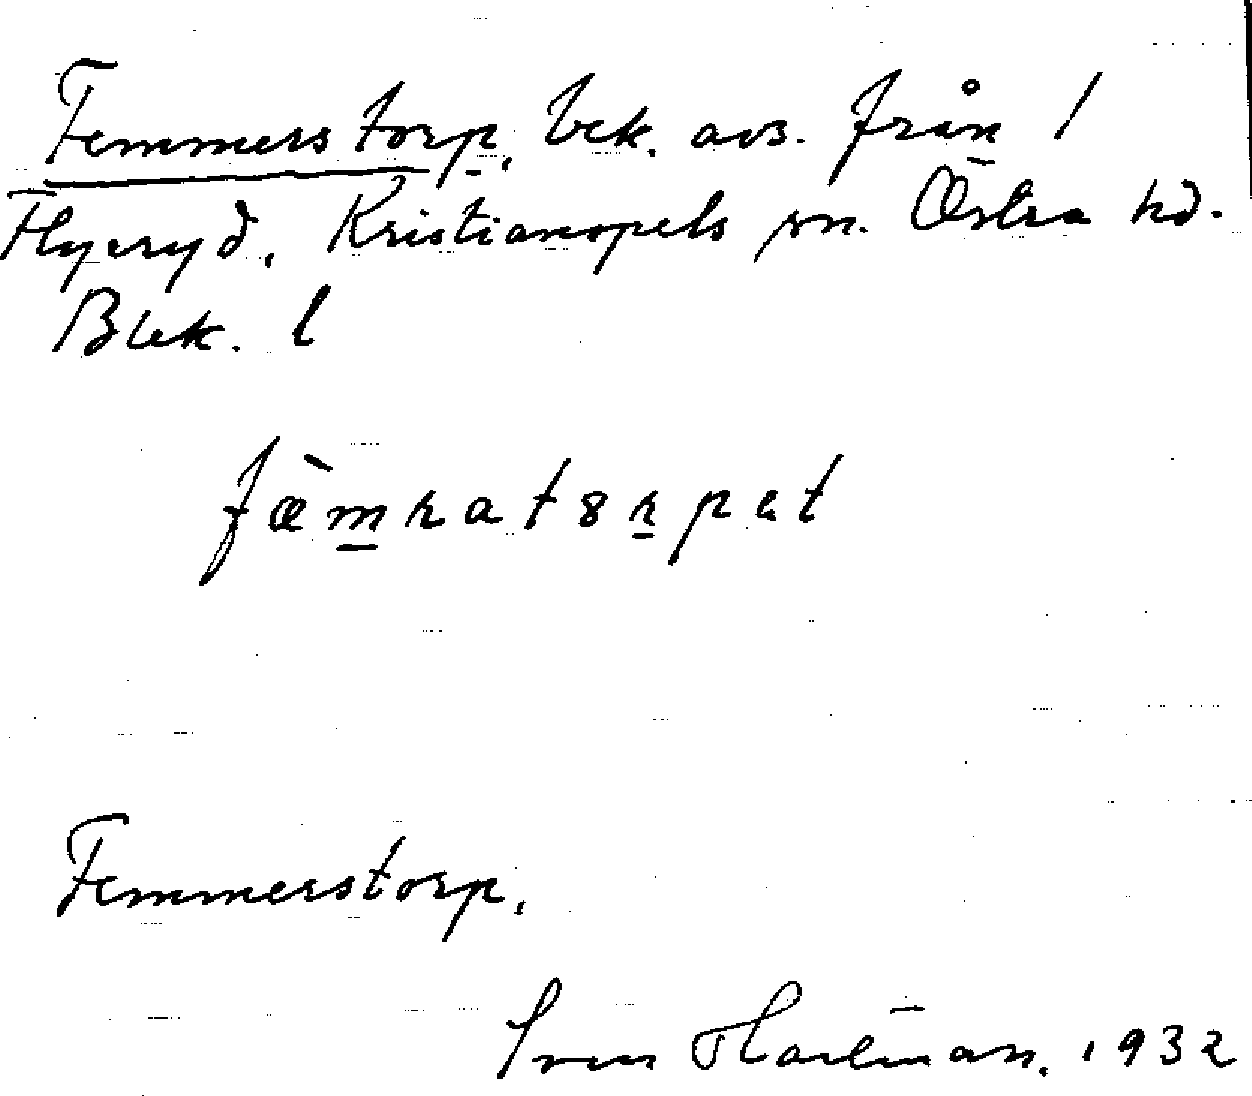 Femmerstorp, bek. avs. från /
Flyeryd, Kristianopels sn. Östra hd.
Blek. l
fæ̀mratorpet
Femmerstorp,
Sven Hartman. 1932